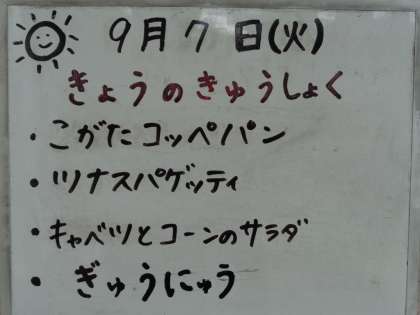 9月7日(火)
きょうのきゅうしょく
・こがたコッペパン
・ツナスパゲッティ
・キャベツとコーンのサラダ
・ぎゅうにゅう